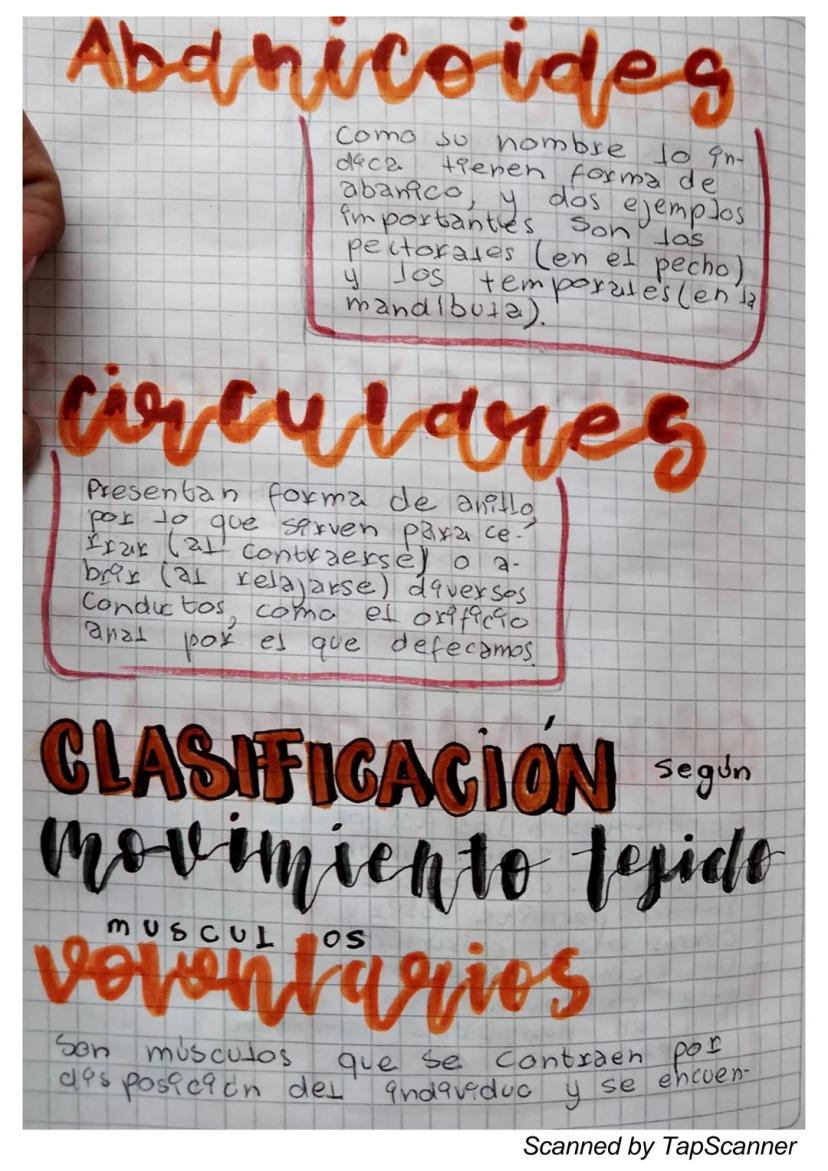 Abanicoides
Como su nombre lo in-
dica tienen forma de
abanico, y dos ejemplos
importantes son los
pectorales (en el pecho)
y los temporales (en la
mandibula).
circulares
Presentan forma de anillo
por lo que sirven para ce-
rrar (al contraerse) o a-
brir (al relajarse) diversos
conductos, como el orificio
anal por el que defecamos.
CLASIFICACIÓN según
movimiento tejido
musculos
voluntarios
Son músculos que se contraen por
disposición del individuo y se encuen-
Scanned by TapScanner